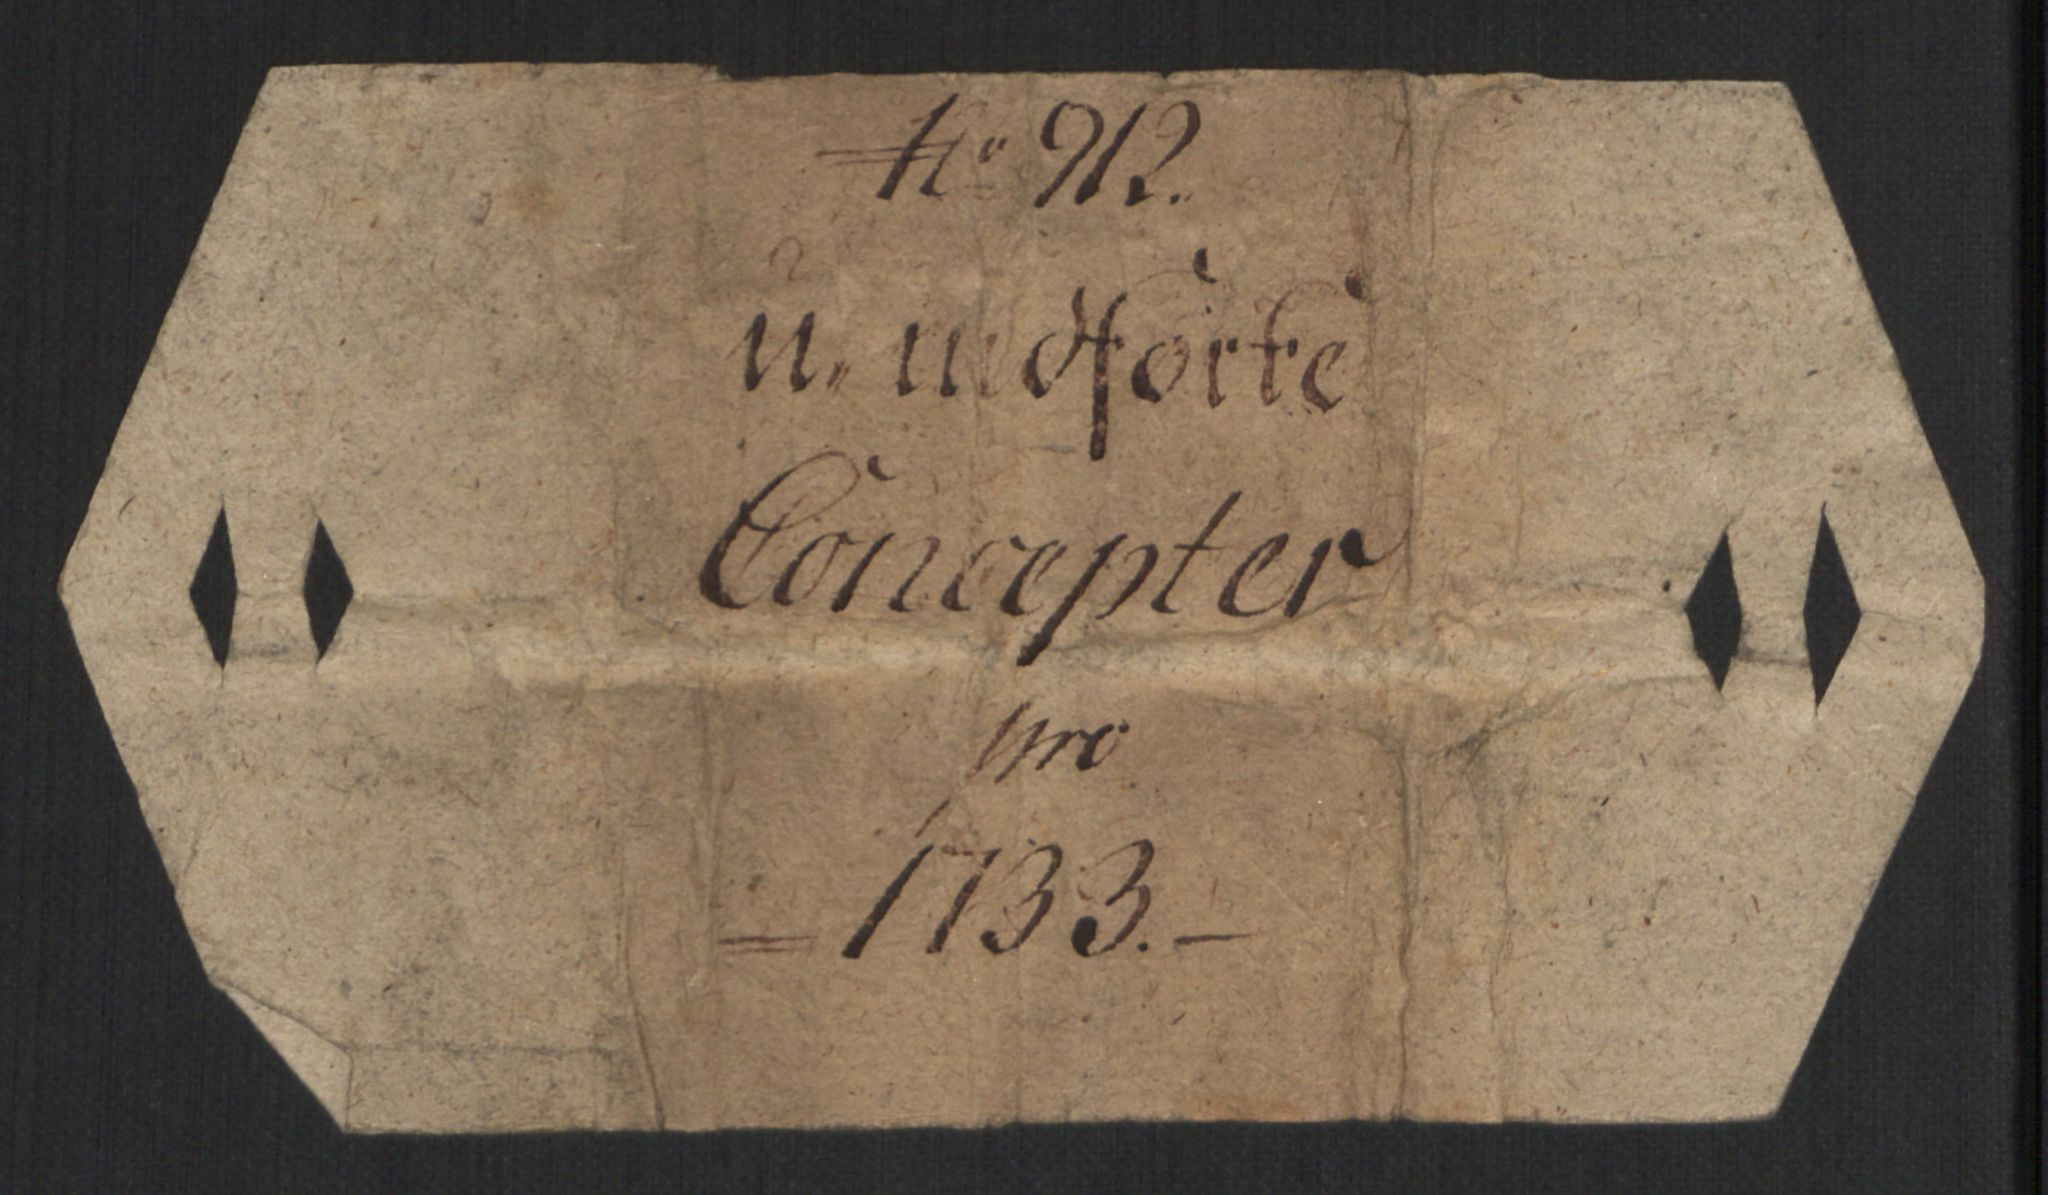 No 912.
u-indförte
Concepter
pro
1733.